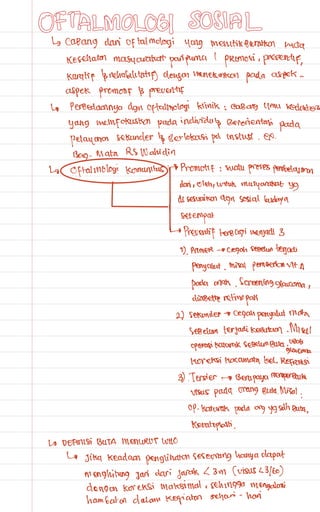 OFTALMOLOGI SOSIAL
↳ Cabang dari oftalmologi yang menitikberatkan pada
kesehatan masyarakat paripurna ( promosi, preventif,
kuratif & rehabilitatif) dengan menekankan pada aspek-
aspek promotif & preventif
↳ Perbedaannya dgn oftalmologi klinik : cabang ilmu kedokteran
yang memfokuskan pada individu & berorientasi pada
pelayanan sekunder & berlokasi pd instusi. ex.
Bag. Mata RS Wahidin
↳ Oftalmologi Komunitas → Promotif : suatu proses pembelajaran
dari, oleh, untuk masyarakat yg
di sesuaikan dgn sosial budaya
setempat
→ Preventif terbagi menjadi 3
1) Primer → cegah sebelum terjadi
penyakit. misal pemberian vit A
pada anak. Screening glaucoma,
diabetic retinopati
2) Sekunder → cegah penyakit mata
sebelum terjadi kebutaan. Misal
operasi katarak sebelum buta, obati glaucoma
koreksi kacamata kel. Refraksi
3) Tersier → Berupaya memperbaiki
visus pada orang buta Misal.
op. katarak pada org yg sdh buta,
keratoplasti.
↳ DEFINISI BUTA MENURUT WHO
↳ Jika keadaan penglihatan seseorang hanya dapat
menghitung jari dari jarak < 3m (visus < 3/60)
dengan koreksi maksimal, sehingga mengalami
hambatan dalam kegiatan sehari - hari